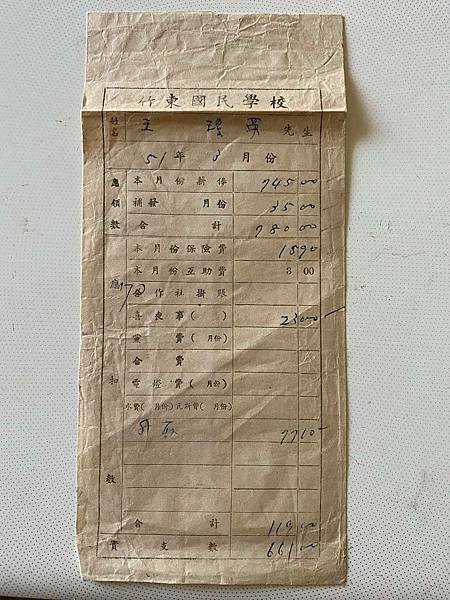 竹東國民學校
姓名 王 英 先生
51年 3月份
應領數
本月份薪俸 745 00
補發 月份 35 00
合計 780 00
應扣數
本月份保險費 18 90
本月份互助費 3 00
合作社掛賬
喜喪事( ) 20 00
黨費(月份)
會費
電燈費(月份)
水費(月份)瓦斯費(月份)
77 10
合計 119 00
實支數 661 00